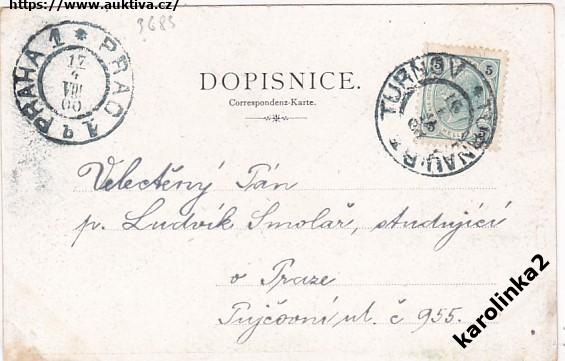 https://www.auktiva.cz/
3685
PRAHA 1 * PRAG 1
17
4
VIII
00
DOPISNICE.
Correspondenz-Karte.
TURNOV * TURNAU
5 5
Velectěný Pán
p. Ludvík Smolař, studující
v Praze
Půjčovní ul. č 955.
karolinka2